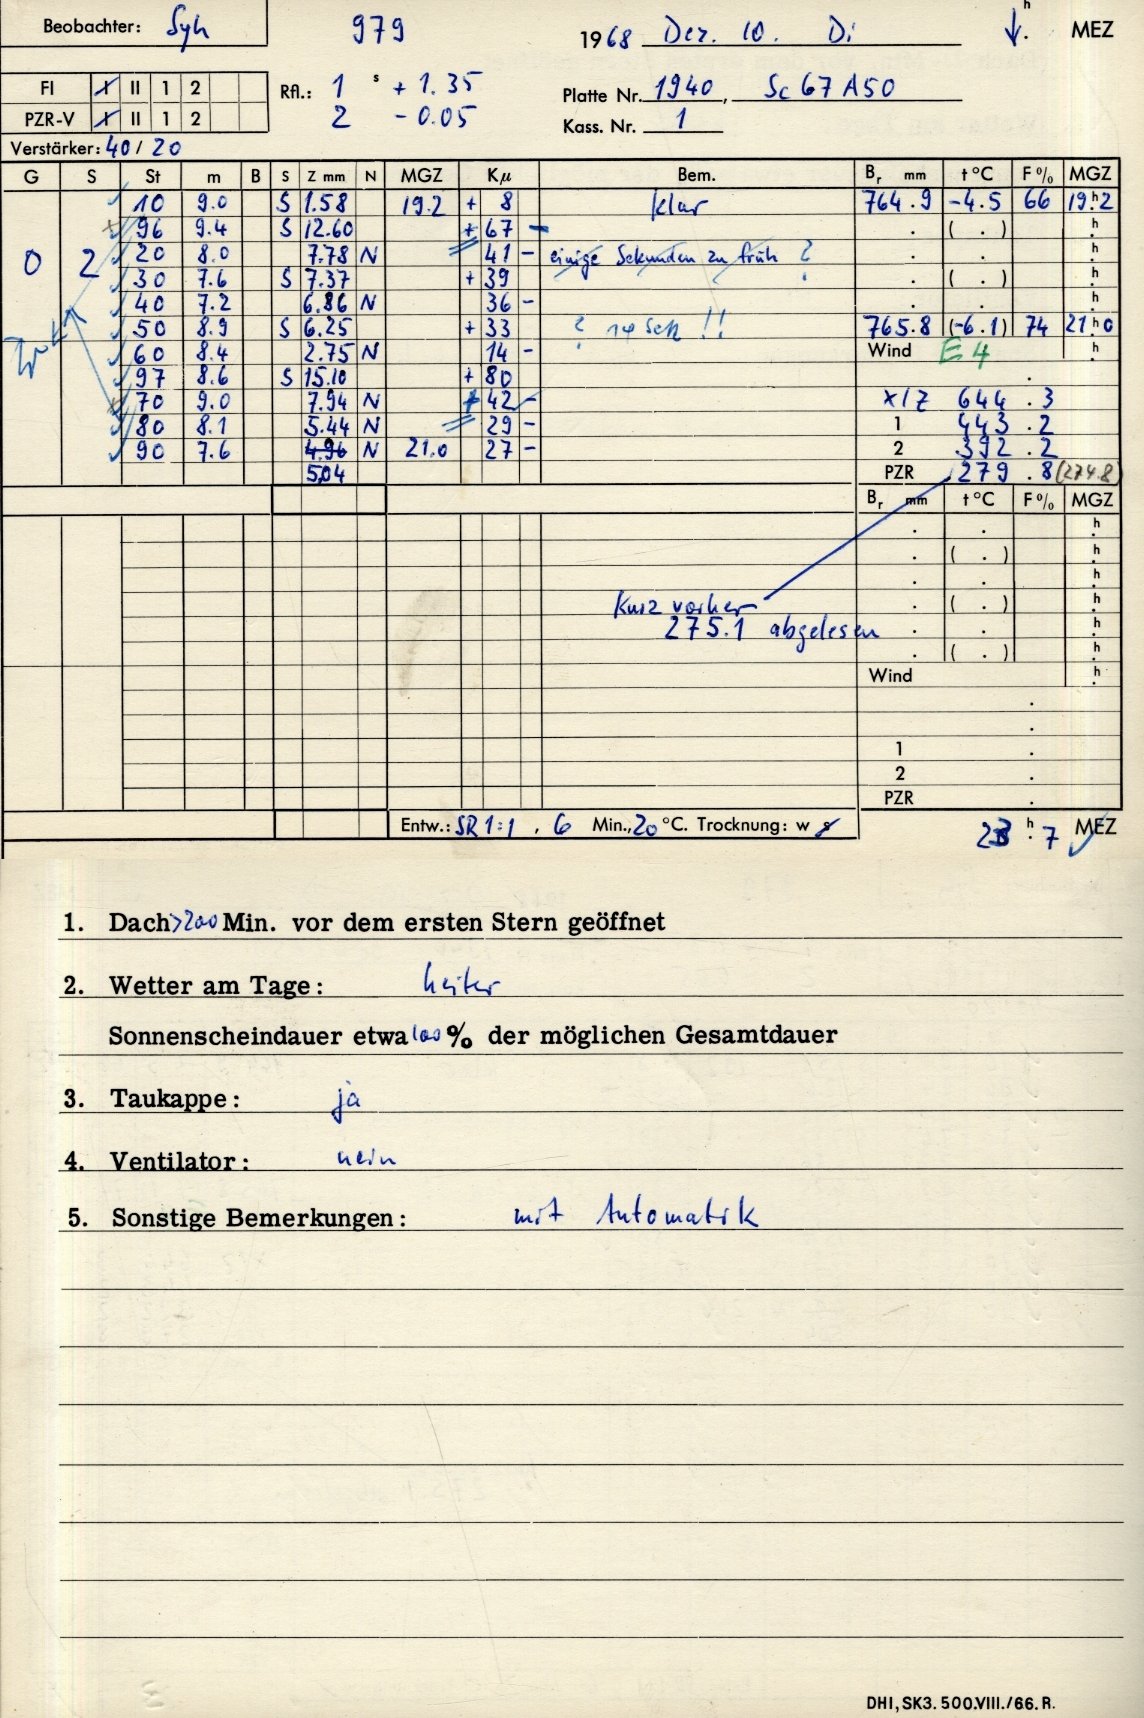 Beobachter: Syh 979 1968 Dez. 10. Di h MEZ
FI I II 1 2 Rfl.: 1 s + 1.35 Platte Nr. 1940, Sc 67 A50
PZR-V I II 1 2 2 - 0.05 Kass. Nr. 1
Verstärker: 40 / 20
G S St m B S Z mm N MGZ Kμ Bem. Br mm t °C F % MGZ
10 9.0 S 1.58 19.2 + 8 klar 764.9 -4.5 66 19.h2
96 9.4 S 12.60 + 67 - . ( . ) h
0 2 20 8.0 7.78 N 41 - einige Sekunden zu früh ? . . h
30 7.6 S 7.37 + 39 . ( . ) h
40 7.2 6.86 N 36 - . . h
50 8.9 S 6.25 + 33 ? 14 sek !! 765.8 (-6.1) 74 21h0
60 8.4 2.75 N 14 - Wind E 4 h
97 8.6 S 15.10 + 80 .
70 9.0 7.94 N + 42 - x/z 644.3
80 8.1 5.44 N 29 - 1 443.2
90 7.6 4.96 N 21.0 27 - 2 392.2
5.04 PZR 279.8 (274.8)
Br mm t °C F % MGZ
. . h
. ( . ) h
. . h
Kurz vorher . ( . ) h
275.1 abgelesen . . h
. ( . ) h
Wind h
.
.
1 .
2 .
PZR .
Entw.: SR 1:1, 6 Min., 20 °C. Trocknung: w s 23 h. 7 MEZ
1. Dach >200 Min. vor dem ersten Stern geöffnet
2. Wetter am Tage: heiter
Sonnenscheindauer etwa 100 % der möglichen Gesamtdauer
3. Taukappe: ja
4. Ventilator: nein
5. Sonstige Bemerkungen: mit Automatik
DHI, SK3. 500.VIII./66. R.